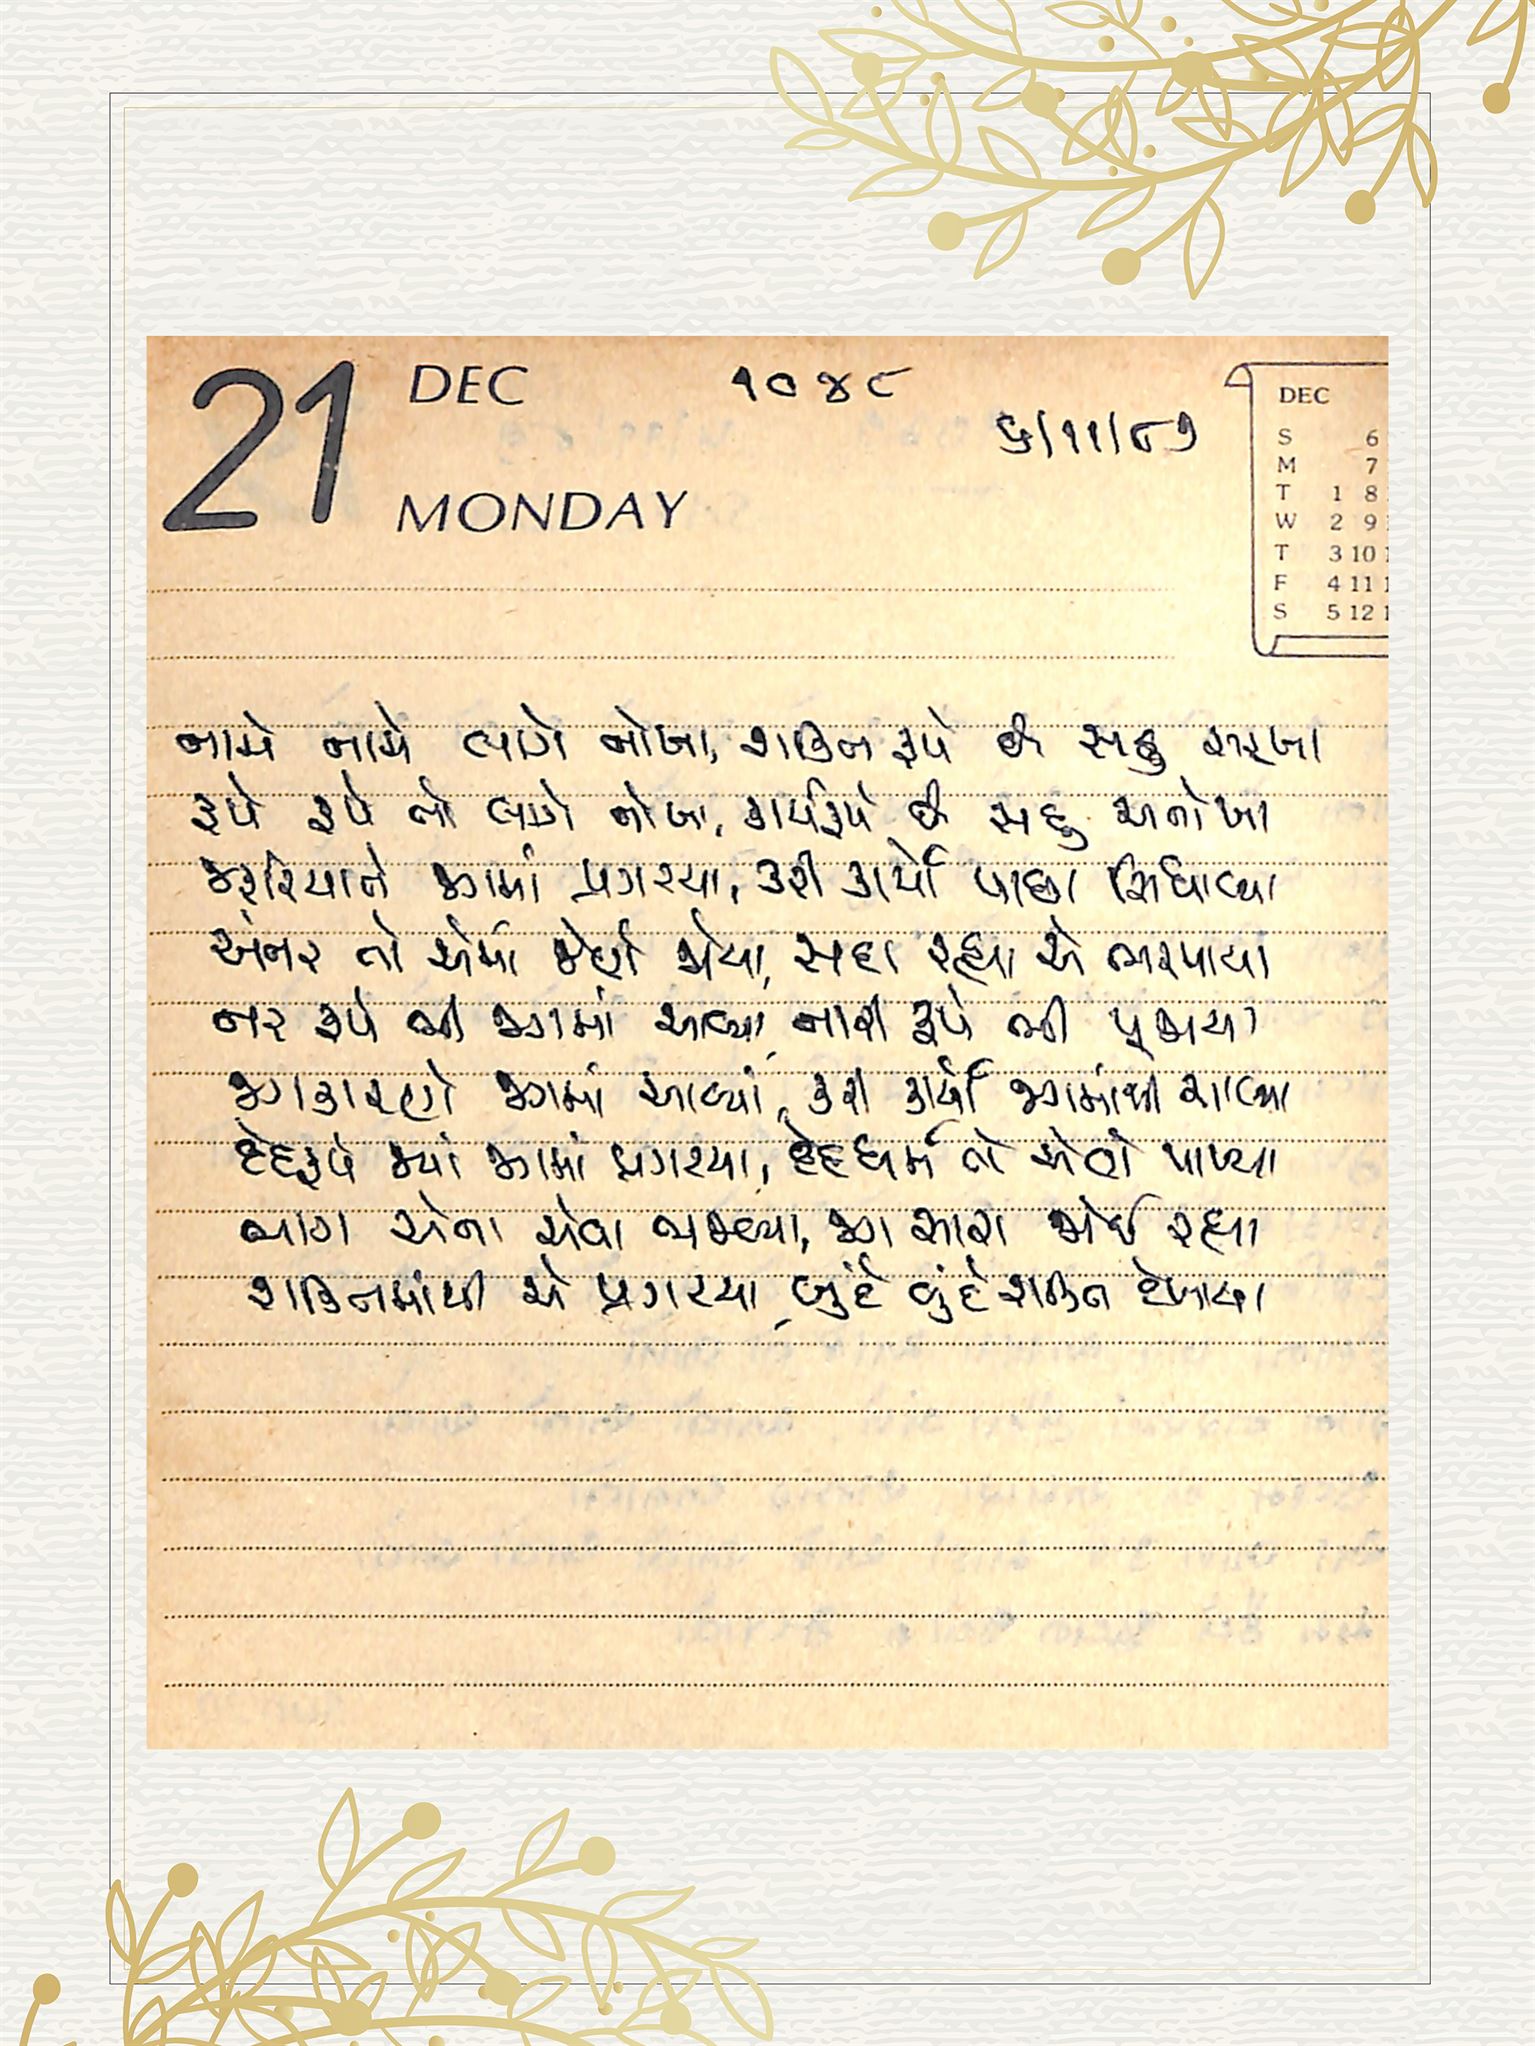 21 DEC ૧૦૪૮
૬/૧૧/૮૭
MONDAY
DEC
S 6
M 7
T 1 8
W 2 9
T 3 10 1
F 4 11 1
S 5 12 1
નામે નામે લાગે નોખા, શક્તિ રૂપે છે સહુ સરખા
રૂપે રૂપે તો લાગે નોખા, કાર્યરૂપે છે સહુ અનોખા
જરૂરિયાને જગમાં પ્રગટયા, કરી કાર્યો પાછા સિધાવ્યા
અંતર તો એમાં જેણે જોયા, સદા રહ્યા એ ભરમાયા
નર રૂપે ભી જગમાં આવ્યા, નારી રૂપે ભી પૂજાયા
જગકારણે જગમાં આવ્યાં, કરી કાર્યો જગમાંથી ચાલ્યા
દેહરૂપે જ્યાં જગમાં પ્રગટયા, દેહધર્મ તો એણે પાળ્યા
ભાગ એના એવા ભજવ્યા, જગ સારા જોઈ રહ્યા
શક્તિમાંથી એ પ્રગટયા, બુંદે બુંદે શક્તિ દેખાયા